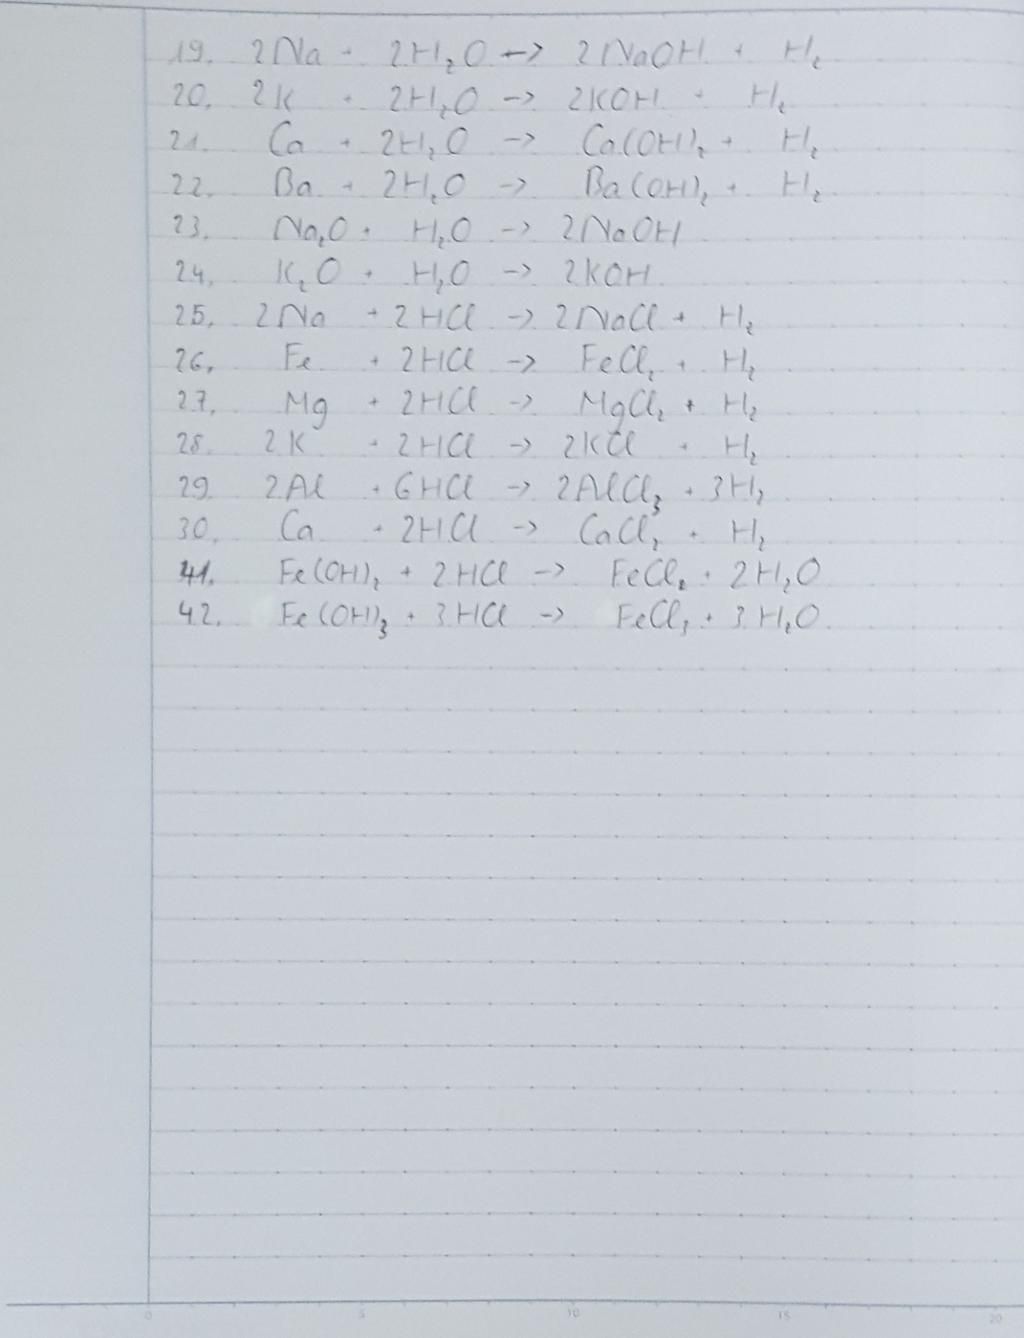 19. 2Na + 2H₂O → 2NaOH + H₂
20. 2K + 2H₂O → 2KOH + H₂
21. Ca + 2H₂O → Ca(OH)₂ + H₂
22. Ba + 2H₂O → Ba(OH)₂ + H₂
23. Na₂O + H₂O → 2NaOH
24. K₂O + H₂O → 2KOH
25. 2Na + 2HCl → 2NaCl + H₂
26. Fe + 2HCl → FeCl₂ + H₂
27. Mg + 2HCl → MgCl₂ + H₂
28. 2K + 2HCl → 2KCl + H₂
29. 2Al + 6HCl → 2AlCl₃ + 3H₂
30. Ca + 2HCl → CaCl₂ + H₂
41. Fe(OH)₂ + 2HCl → FeCl₂ + 2H₂O
42. Fe(OH)₃ + 3HCl → FeCl₃ + 3H₂O
0 5 10 15 20